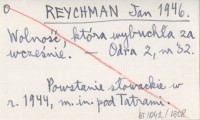 REYCHMAN Jan 1946.
Wolność, która wybuchła za
wcześnie. – Odra 2, nr 32.
Powstanie słowackie w
r. 1944, m.in. pod Tatrami.